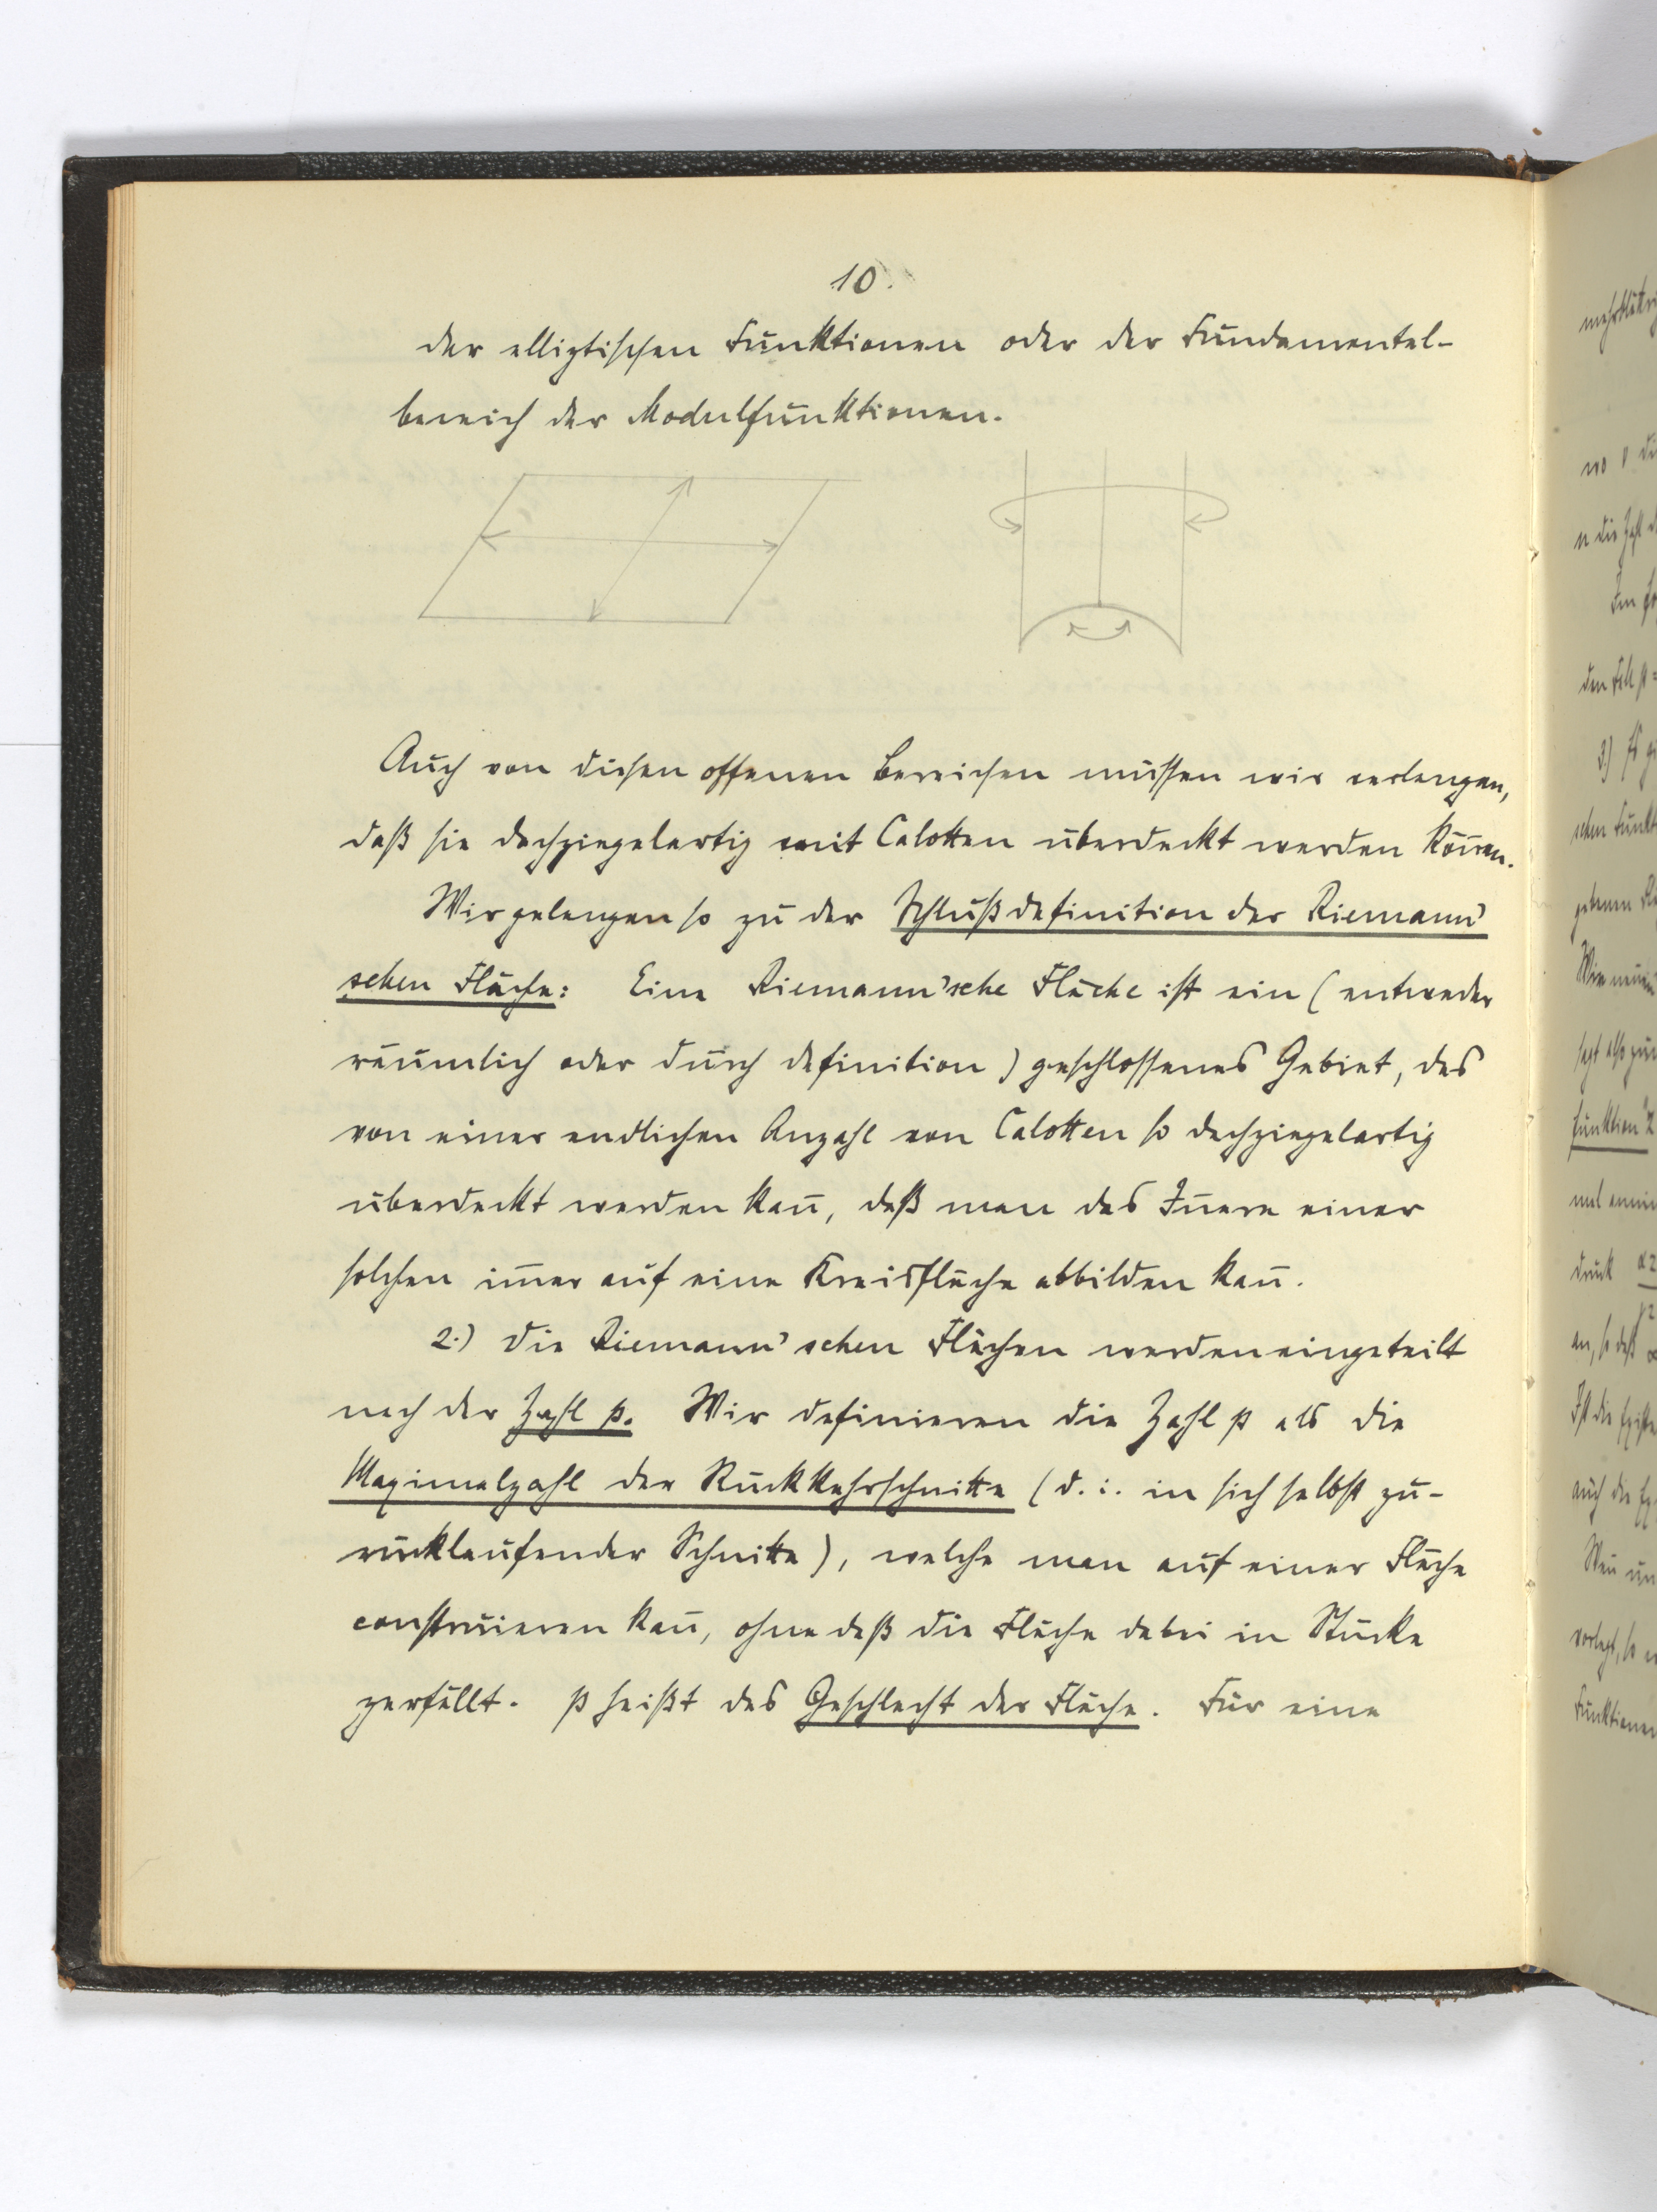 10.
der elliptischen Funktionen oder der Fundamental-
bereich der Modulfunktionen.
Auch von diesen offenen Bereichen müssen wir verlangen,
daß sie dachziegelartig mit Calotten überdeckt werden köñen.
Wir gelangen so zu der Schlußdefinition der Riemann'
schen Fläche: Eine Riemann'sche Fläche ist ein (entweder
räumlich oder durch Definition) geschlossenes Gebiet, das
von einer endlichen Anzahl von Calotten so dachziegelartig
überdeckt werden kañ, daß man das Iñere einer
solchen im̄er auf eine Kreisfläche abbilden kañ.
2.) Die Riemann'schen Flächen werden eingeteilt
nach der Zahl p. Wir definieren die Zahl p als die
Maximalzahl der Rückkehrschnitte (d.i. in sich selbst zu-
rücklaufender Schnitte), welche man auf einer Fläche
construieren kañ, ohne daß die Fläche dabei in Stücke
zerfällt. p heißt das Geschlecht der Fläche. Für eine
wo
n die Zahl
den Fall p =
3) Es
schen Funkt
Funktion
druck
an, so daß
Ist die
auch die
vorlegt, so
Funktionen